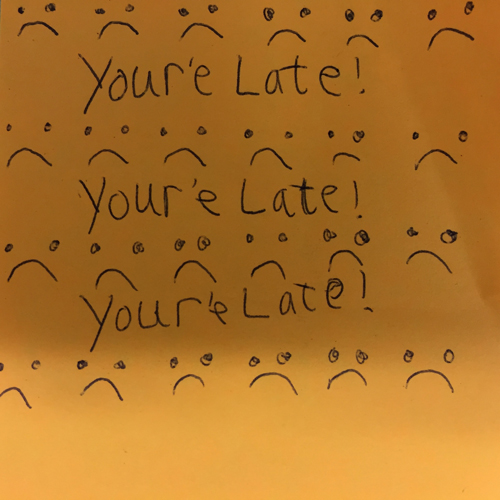 Your'e Late!
Your'e Late!
Your'e Late!